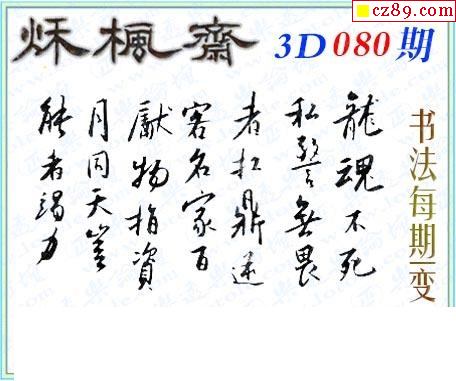 cz89.com
烌楓齋
3D080期
龍魂不死
私誓無畏
者扛鼎
客名家百
獻物捐資
月同天
能者竭力
书法每期一变